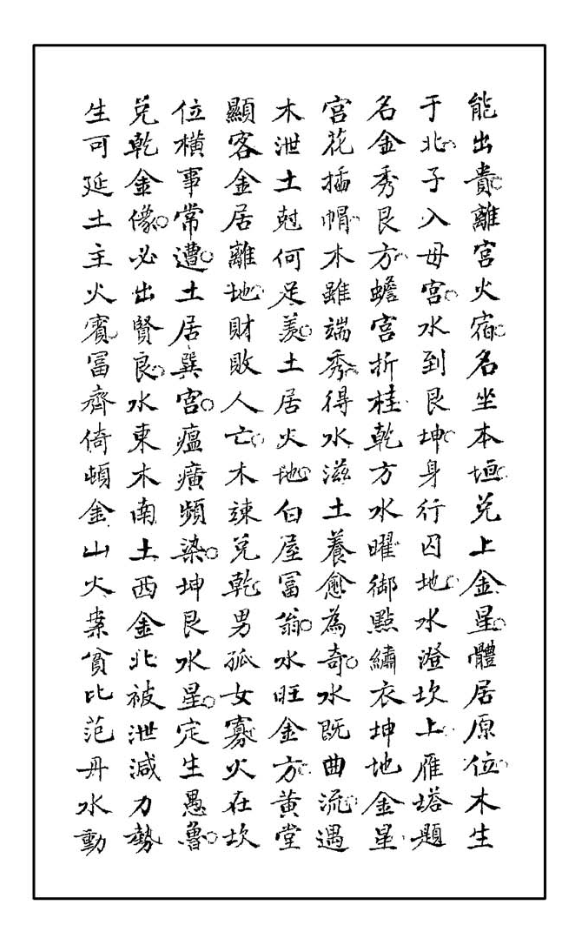 能出貴。離宮火宿。名坐本垣。兌上金星。體居原位。木生
于北。子入母宮。水到艮坤。身行囚地。水澄坎上。雁塔題
名金秀艮方。蟾宮折桂。乾方水曜御點繡衣。坤地金星。
宮花插帽。木雖端秀。得水滋土養愈為奇。水既曲流。遇
木泄土尅何足羨。土居火地。白屋冨翁。水旺金方。黃堂
顯客。金居離地。財敗人亡。木竦兌乾。男孤女寡。火在坎
位橫事常遭。土居巽宮。瘟癀頻染。坤艮水星。定生愚魯。
兌乾金像。必出賢良。水東木南土西金北被泄減力勢
生可延土主火賓。冨齊倚頓金山火案貧比范丹水動